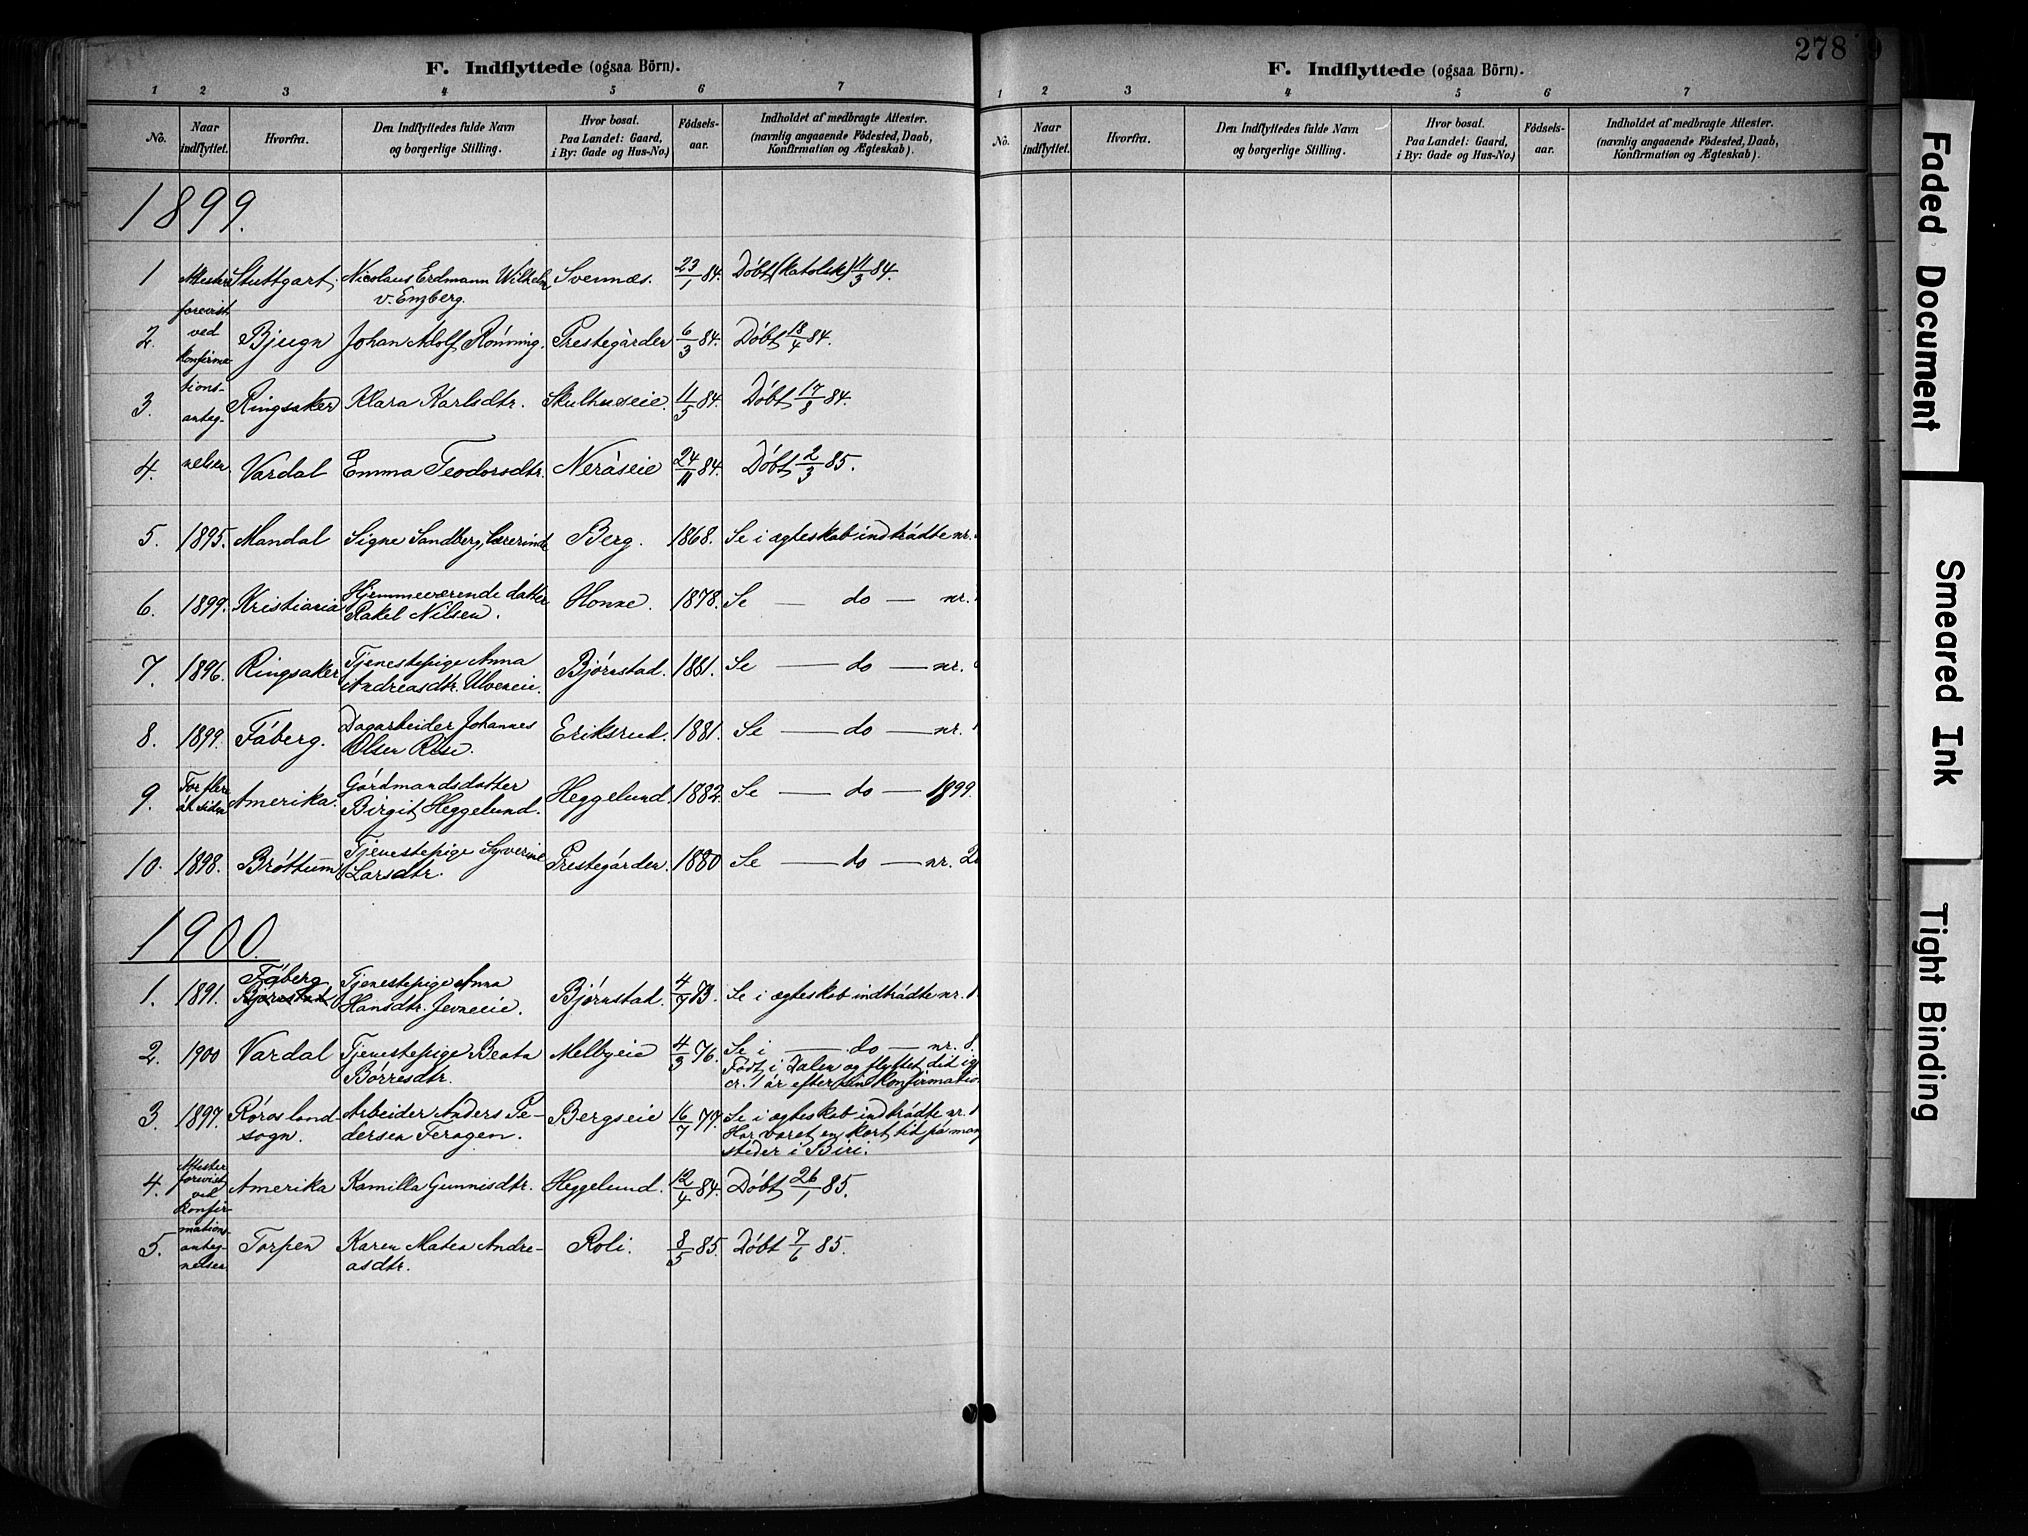 F. Indflyttede (ogsaa Börn).
1 2 3 4 5 6 7
No. Naar indflyttet. Hvorfra. Den Indflyttedes fulde Navn og borgerlige Stilling. Hvor bosat. Paa Landet: Gaard, i By: Gade og Hus-No.) Fødsels-aar. Indholdet af medbragte Attester. (navnlig angaaende Födested, Daab, Konfirmation og Ægteskab).
1899.
1 Attester Stuttgart. Nicolaus Erdmann Wilhelm v. Enzberg. Svennæs. 23/1 84. Døbt (katolsk) 11/3 84.
2. forevist ved konfirma Bjugn Johan Adolf Rønning. Prestegården 6/3 84. Døbt 18/4 84.
3. tions-anteg- Ringsaker Klara Karlsdtr. Skulhuseie. 11/5 84. Døbt 17/8 84.
4. nelsen. Vardal Emma Teodorsdtr. Neråseie 24/11 84. Døbt 2/3 85.
5. 1895. Mandal Signe Sandberg, Lærerinde Berg. 1868. Se i ægteskab indtrådte nr.
6. 1899. Kristiania Hjemmeværende datter Rakel Nilsen. Honne. 1878. Se — do — nr.
7. 1896. Ringsaker Tjenestepige Anna Andreasdtr. Ulveneie. Bjørnstad. 1881. Se — do — nr.
8. 1899. Fåberg. Dagarbeider Johannes Olsen Rise. Eriksrud. 1881. Se — do — nr.
9. For flere år siden Amerika. Gårdmandsdatter Birgit Heggelund. Heggelund. 1882. Se — do — 1899.
10. 1898. Brøttum Tjenestepige Syverine Larsdtr. Prestegården. 1880 Se — do — nr. 2
1900.
1. 1891. Fåberg Bjørnstad Tjenestepige Anna Hansdtr. Jevneeie. Bjørnstad. 4/7 73. Se i ægteskab indtrådte nr. 1
2. 1900 Vardal Tjenestepige Beata Børresdtr. Melbyeie 4/3 76. Se i — do — nr. 8.
Født i Dalen og flyttet did
cr. 1 år efter sin konfirmatio
3. 1897. Røros land-sogn. Arbeider Anders Pe-dersen Feragen. Bergseie 16/7 77. Se i ægteskab indtrådte nr. 1
Har været en kort tid på man
steder i Biri.
4. Attester forevist ved konfir- Amerika Kamilla Gunnisdtr. Heggelund. 12/4 84. Døbt 26/1 85.
5. mations-anteg-nelsen Torpen Karen Matea Andre-asdtr. Roli. 8/5 85. Døbt 7/6 85.
F. Indflyttede (ogsaa Börn).
278
1 2 3 4 5 6 7
No. Naar indflyttet. Hvorfra. Den Indflyttedes fulde Navn og borgerlige Stilling. Hvor bosat. Paa Landet: Gaard, i By: Gade og Hus-No.) Fødsels-aar. Indholdet af medbragte Attester. (navnlig angaaende Födested, Daab, Konfirmation og Ægteskab).
Faded Document
Smeared Ink
Tight Binding